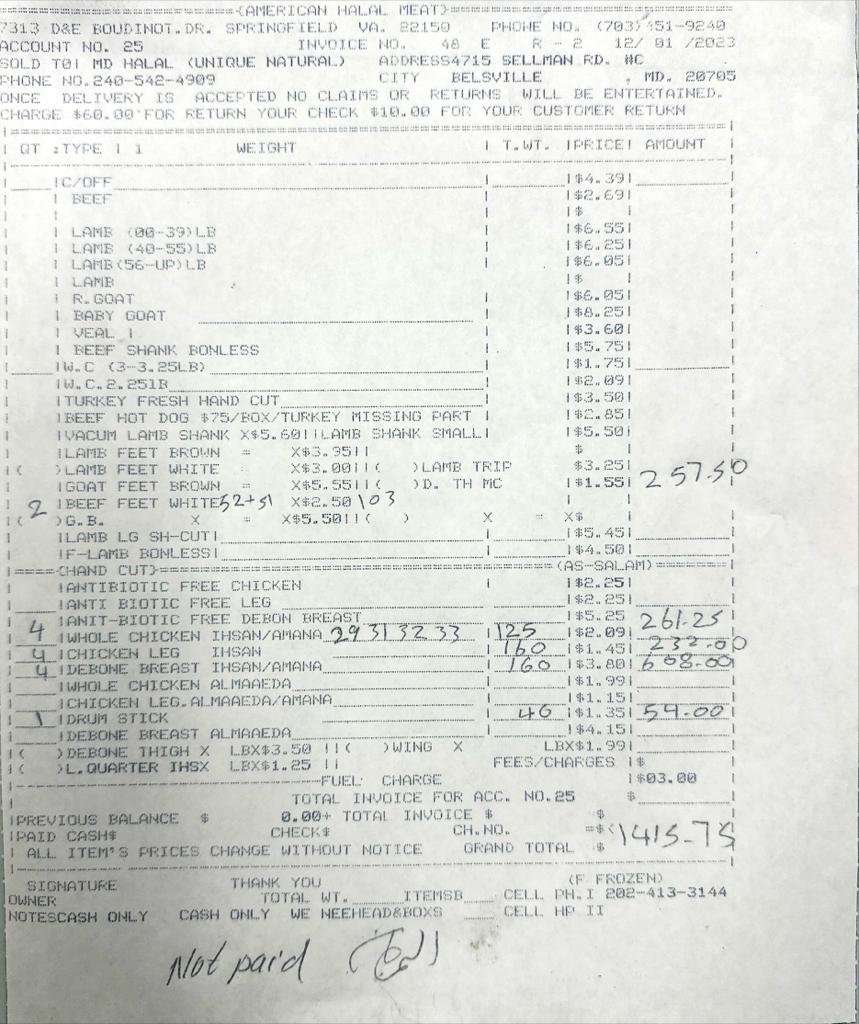 (AMERICAN HALAL MEAT)
7313 D&E BOUDINOT.DR. SPRINGFIELD VA. 22150 PHONE NO. (703) 451-9240
ACCOUNT NO. 25 INVOICE NO. 48 E R - 2 12/ 01 /2023
SOLD TO: MD HALAL (UNIQUE NATURAL) ADDRESS4715 SELLMAN RD. #C
PHONE NO.240-542-4909 CITY BELSVILLE , MD. 20705
ONCE DELIVERY IS ACCEPTED NO CLAIMS OR RETURNS WILL BE ENTERTAINED.
CHARGE $60.00 FOR RETURN YOUR CHECK $10.00 FOR YOUR CUSTOMER RETURN
QT :TYPE | 1 WEIGHT | T.WT. |PRICE| AMOUNT
|C/OFF |$4.39|
| BEEF |$2.69|
| |$ |
| LAMB (00-39)LB |$6.55|
| LAMB (40-55)LB |$6.25|
| LAMB(56-UP)LB |$6.05|
| LAMB |$ |
| R.GOAT |$6.05|
| BABY GOAT |$8.25|
| VEAL | |$3.60|
| BEEF SHANK BONLESS |$5.75|
|W.C (3-3.25LB) |$1.75|
|W.C.2.25lB |$2.09|
|TURKEY FRESH HAND CUT |$3.50|
|BEEF HOT DOG $75/BOX/TURKEY MISSING PART |$2.85|
|VACUM LAMB SHANK X$5.60||LAMB SHANK SMALL| |$5.50|
|LAMB FEET BROWN = X$3.95|| $ |
|( )LAMB FEET WHITE = X$3.00||( )LAMB TRIP $3.25|
|GOAT FEET BROWN = X$5.55||( )D. TH MC |$1.55| 257.50
2 |BEEF FEET WHITE 52+51 X$2.50 103
|( )G.B. X = X$5.50||( ) X = X$
|LAMB LG SH-CUT| |$5.45|
|F-LAMB BONLESS| |$4.50|
(HAND CUT) (AS-SALAM)
|ANTIBIOTIC FREE CHICKEN |$2.25|
|ANTI BIOTIC FREE LEG |$2.25|
|ANIT-BIOTIC FREE DEBON BREAST |$5.25
4 |WHOLE CHICKEN IHSAN/AMANA 29 31 32 33 |125 |$2.09| 261.25
4 |CHICKEN LEG IHSAN 160 |$1.45| 232.00
4 |DEBONE BREAST IHSAN/AMANA 160 |$3.80| 608.00
|WHOLE CHICKEN ALMAAEDA |$1.99|
|CHICKEN LEG.ALMAAEDA/AMANA |$1.15|
1 |DRUM STICK 40 |$1.35| 54.00
|DEBONE BREAST ALMAAEDA |$4.15|
|( )DEBONE THIGH X LBX$3.50 ||( )WING X LBX$1.99|
|( )L.QUARTER IHSX LBX$1.25 || FEES/CHARGES |$
FUEL CHARGE |$03.00
TOTAL INVOICE FOR ACC. NO.25 $
|PREVIOUS BALANCE $ 0.00+ TOTAL INVOICE $ $
|PAID CASH$ CHECK$ CH.NO. =$<
| ALL ITEM'S PRICES CHANGE WITHOUT NOTICE GRAND TOTAL $ 1415-75
SIGNATURE THANK YOU (F FROZEN)
OWNER TOTAL WT. ITEMSB CELL PH.I 202-413-3144
NOTESCASH ONLY CASH ONLY WE NEEHEAD&BOXS CELL HP II
Not paid